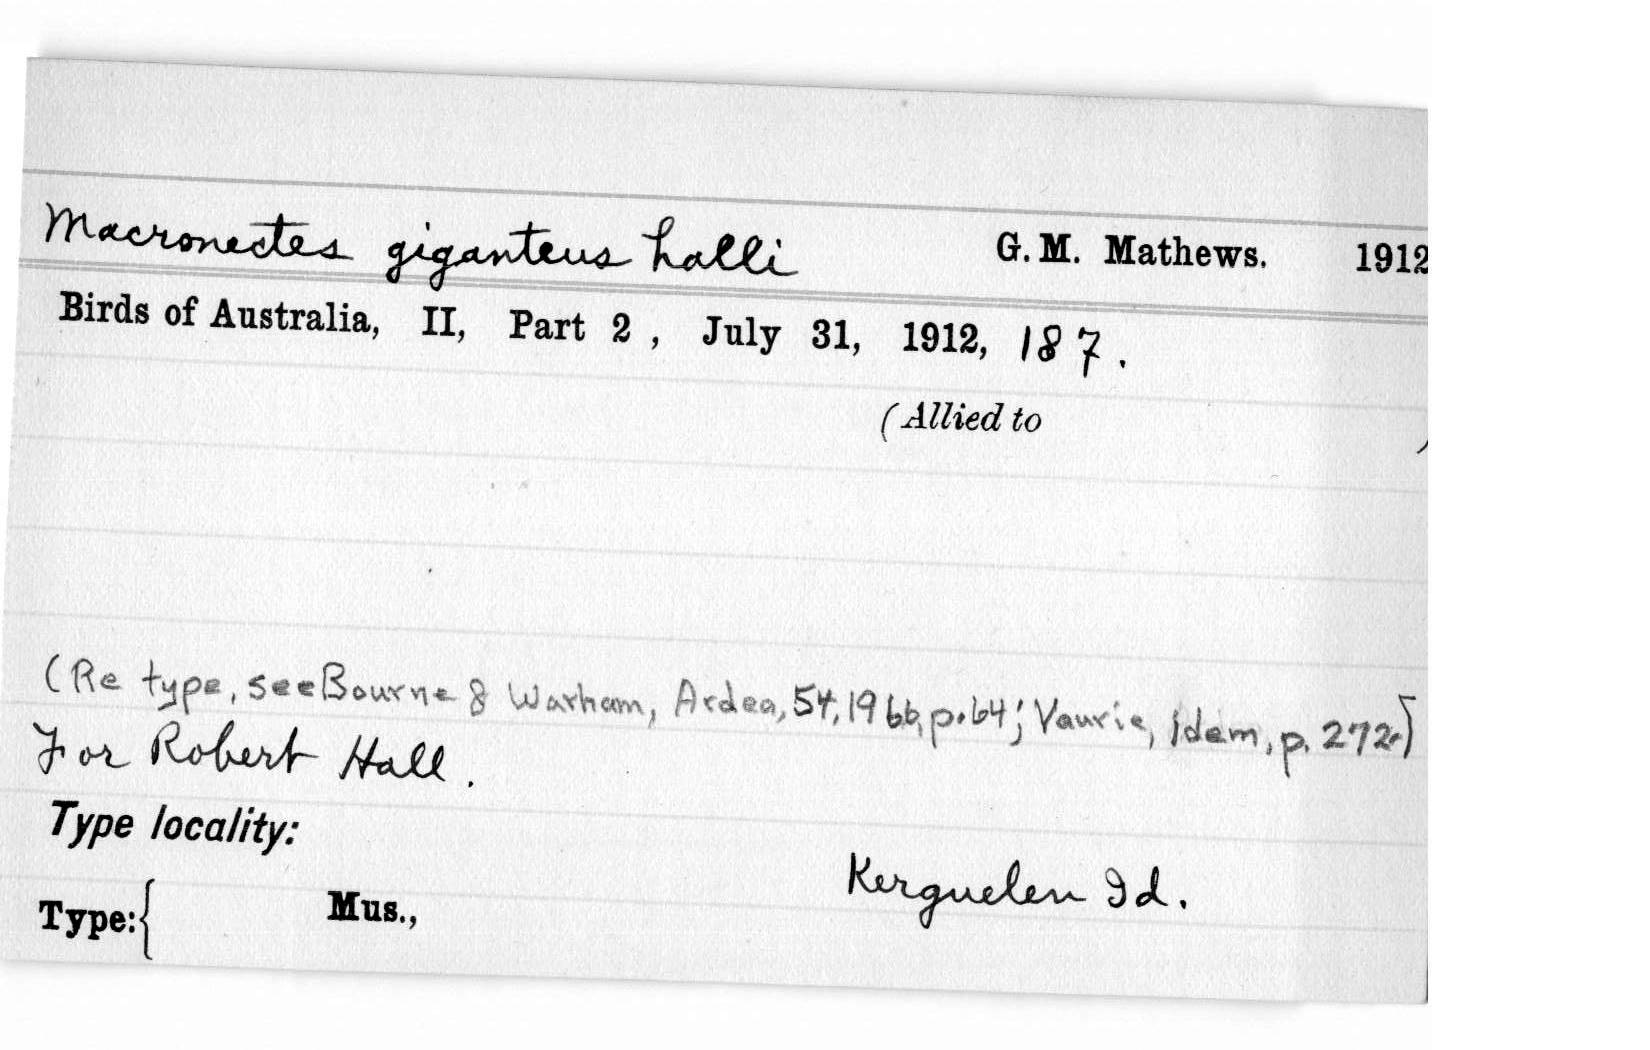 Macronectes giganteus halli G. M. Mathews. 1912
Birds of Australia, II, Part 2 , July 31, 1912, 187.
(Allied to )
(Re type, see Bourne & Warham, Ardea, 54, 1966, p. 64; Vaurie, idem, p. 272.]
For Robert Hall.
Type locality:
Kerguelen Id.
Type:{ Mus.,